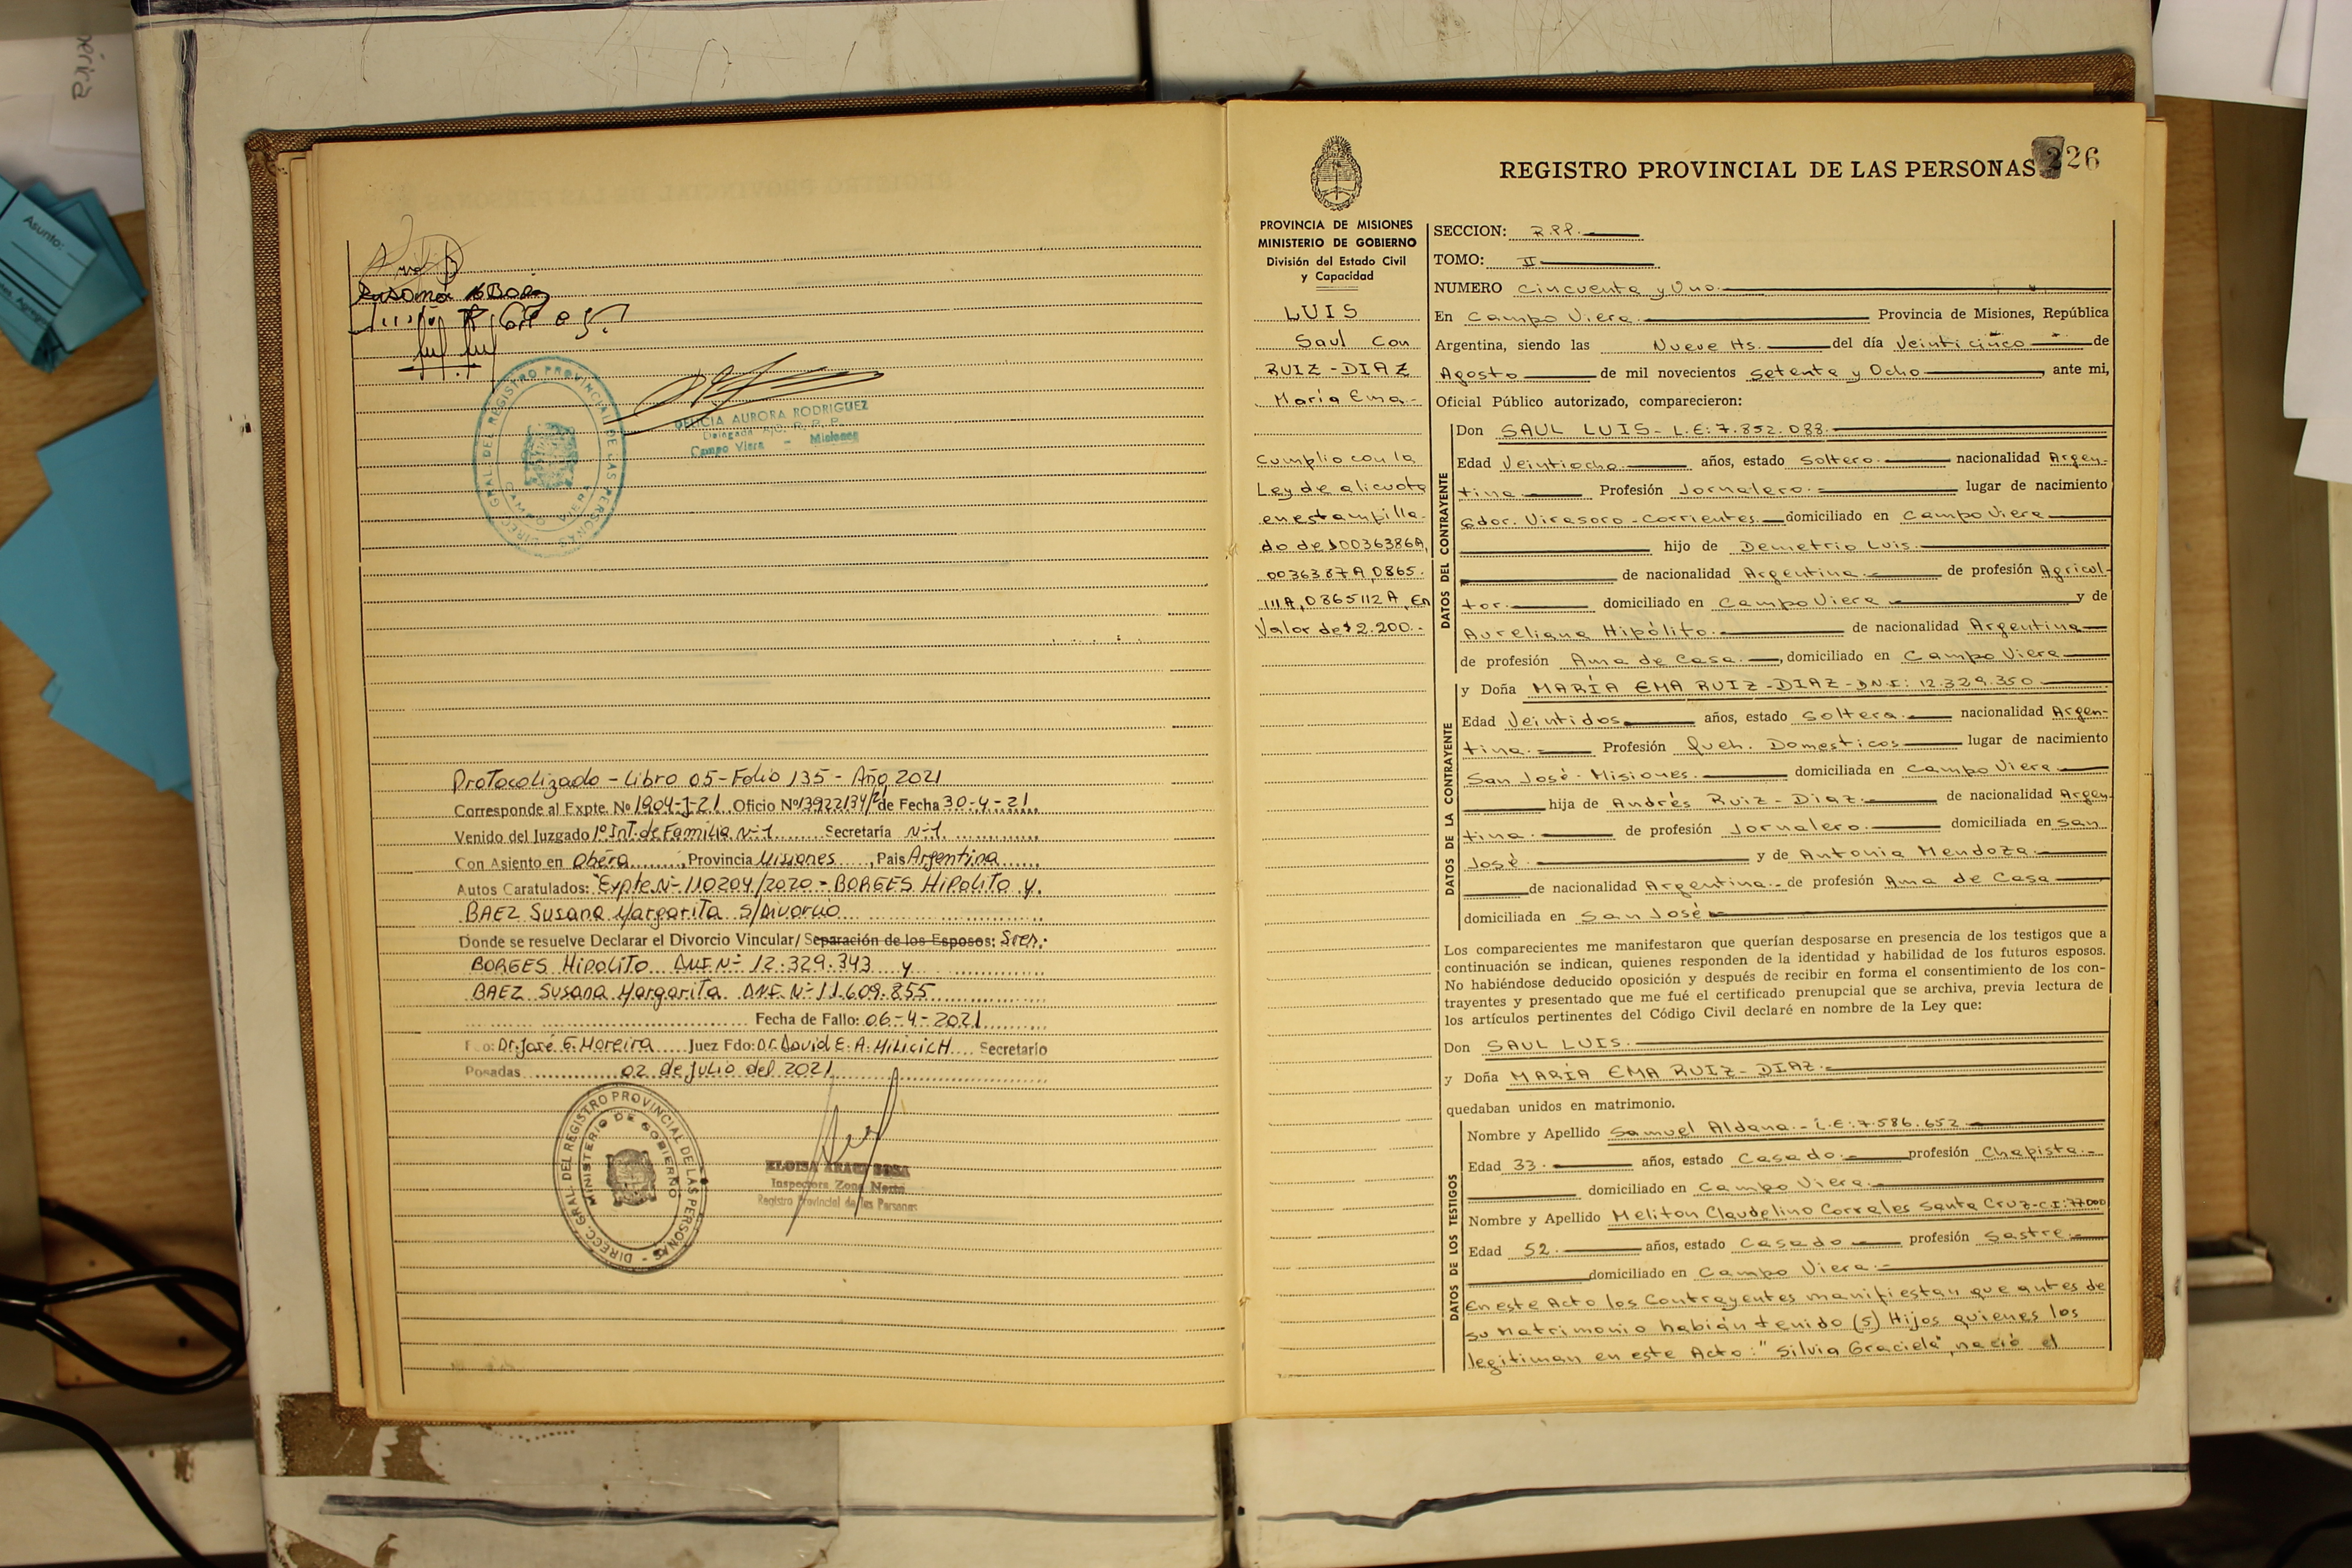 Asunto:
Susana M Baez
DIRECC. GRAL. DEL REGISTRO PROVINCIAL DE LAS PERSONAS
CAMPO VIERA
DELICIA AURORA RODRIGUEZ
Delegada A/C. R. P. P.
Campo Viera - Misiones
Protocolizado - Libro 05 - Folio 135 - Año 2021
Corresponde al Expte. Nº 1904-J-21 Oficio Nº 13922134/21 de Fecha 30-4-21
Venido del Juzgado 1º Int. de Familia Nº1 Secretaría Nº1
Con Asiento en Oberá, Provincia Misiones, Pais Argentina
Autos Caratulados: "Expte. Nº 110204/2020 - BORGES Hipolito y
BAEZ Susana Margarita s/Divorcio
Donde se resuelve Declarar el Divorcio Vincular/ Separación de los Esposos: Sres.:
BORGES Hipolito DNI Nº 12.329.343 y
BAEZ Susana Margarita DNI Nº 11.609.855
Fecha de Fallo: 06-4-2021
Fdo: Dr. José G. Moreira Juez Fdo: Dr. David E. A. MILICICH Secretario
Posadas 02 de Julio del 2021
DIRECC. GRAL. DEL REGISTRO PROVINCIAL DE LAS PERSONAS
MINISTERIO DE GOBIERNO
ELOISA ARACI SOSA
Inspectora Zona Norte
Registro Provincial de las Personas
REGISTRO PROVINCIAL DE LAS PERSONAS 226
PROVINCIA DE MISIONES
MINISTERIO DE GOBIERNO
División del Estado Civil
y Capacidad
LUIS
Saul Con
RUIZ-DIAZ
María Ema.-
Cumplio con la
Ley de alicuota
en estampilla-
do de 10036386A,
0036387A, 0865.
111A, 0865112A, En
Valor de $2.200.-
SECCION: R.P.P.
TOMO: II
NUMERO Cincuenta y Uno.
En Campo Viera. Provincia de Misiones, República
Argentina, siendo las Nueve Hs. del día Veinticinco de
Agosto de mil novecientos Setenta y Ocho, ante mi,
Oficial Público autorizado, comparecieron:
DATOS DEL CONTRAYENTE
Don SAUL LUIS- L.E: 7.852.088.-
Edad Veintiocho años, estado Soltero. nacionalidad Argen-
tina Profesión Jornalero.- lugar de nacimiento
Gdor. Virasoro - Corrientes. domiciliado en Campo Viera
hijo de Demetrio Luis.
de nacionalidad Argentina. de profesión Agricul-
tor. domiciliado en Campo Viera y de
Aureliana Hipólito. de nacionalidad Argentina
de profesión Ama de Casa. domiciliado en Campo Viera
DATOS DE LA CONTRAYENTE
y Doña MARÍA EMA RUIZ-DIAZ- D.N.I: 12.329.350
Edad Veintidos años, estado Soltera. nacionalidad Argen-
tina.- Profesión Queh. Domesticos lugar de nacimiento
San José- Misiones. domiciliada en Campo Viera
hija de Andrés Ruiz-Diaz.- de nacionalidad Argen-
tina. de profesión Jornalero. domiciliada en San
José. y de Antonia Mendoza.
de nacionalidad Argentina.- de profesión Ama de Casa
domiciliada en San José
Los comparecientes me manifestaron que querían desposarse en presencia de los testigos que a
continuación se indican, quienes responden de la identidad y habilidad de los futuros esposos.
No habiéndose deducido oposición y después de recibir en forma el consentimiento de los con-
trayentes y presentado que me fué el certificado prenupcial que se archiva, previa lectura de
los artículos pertinentes del Código Civil declaré en nombre de la Ley que:
Don SAUL LUIS.
y Doña MARÍA EMA RUIZ-DIAZ.-
quedaban unidos en matrimonio.
DATOS DE LOS TESTIGOS
Nombre y Apellido Samuel Aldana.- L.E: 7.586.652
Edad 33. años, estado Casado.- profesión Chapista.-
domiciliado en Campo Viera.
Nombre y Apellido Meliton Claudelino Corrales Santa Cruz- C.I: 77000
Edad 52. años, estado Casado profesión Sastre.-
domiciliado en Campo Viera.-
En este Acto los Contrayentes manifiestan que antes de
su Matrimonio habían tenido (5) Hijos quienes los
legitiman en este Acto: "Silvia Graciela", nació el